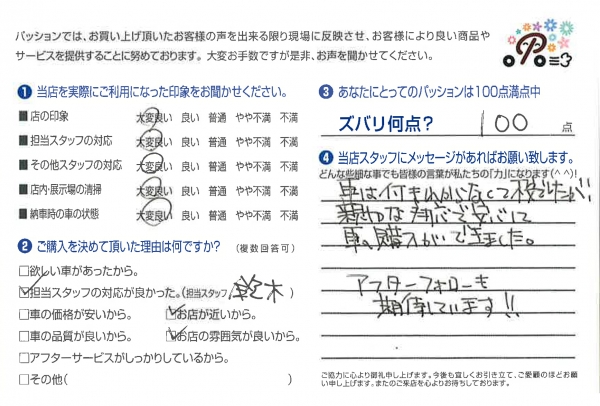 パッションでは、お買い上げ頂いたお客様の声を出来る限り現場に反映させ、お客様により良い商品や
サービスを提供することに努めております。大変お手数ですが是非、お声を聞かせてください。
❶ 当店を実際にご利用になった印象をお聞かせください。
■ 店の印象 大変良い 良い 普通 やや不満 不満
■ 担当スタッフの対応 大変良い 良い 普通 やや不満 不満
■ その他スタッフの対応 大変良い 良い 普通 やや不満 不満
■ 店内・展示場の清掃 大変良い 良い 普通 やや不満 不満
■ 納車時の車の状態 大変良い 良い 普通 やや不満 不満
❷ ご購入を決めて頂いた理由は何ですか？（複数回答可）
□欲しい車があったから。
☑担当スタッフの対応が良かった。(担当スタッフ/鈴木)
□車の価格が安いから。 ☑お店が近いから。
□車の品質が良いから。 ☑お店の雰囲気が良いから。
□アフターサービスがしっかりしているから。
□その他( )
❸ あなたにとってのパッションは100点満点中
ズバリ何点？ 100 点
❹ 当店スタッフにメッセージがあればお願い致します。
どんな些細な事でも皆様の言葉が私たちの「力」になります(^ ^)!
車は何もわからなくて不安でしたが、
親切な対応で安心して
車の購入ができました。
アフターフォローも
期待しています!!
ご協力に心より御礼申し上げます。今後も宜しくお引き立て、ご愛顧のほどお願
い申し上げます。またのご来店を心よりお待ちしております。